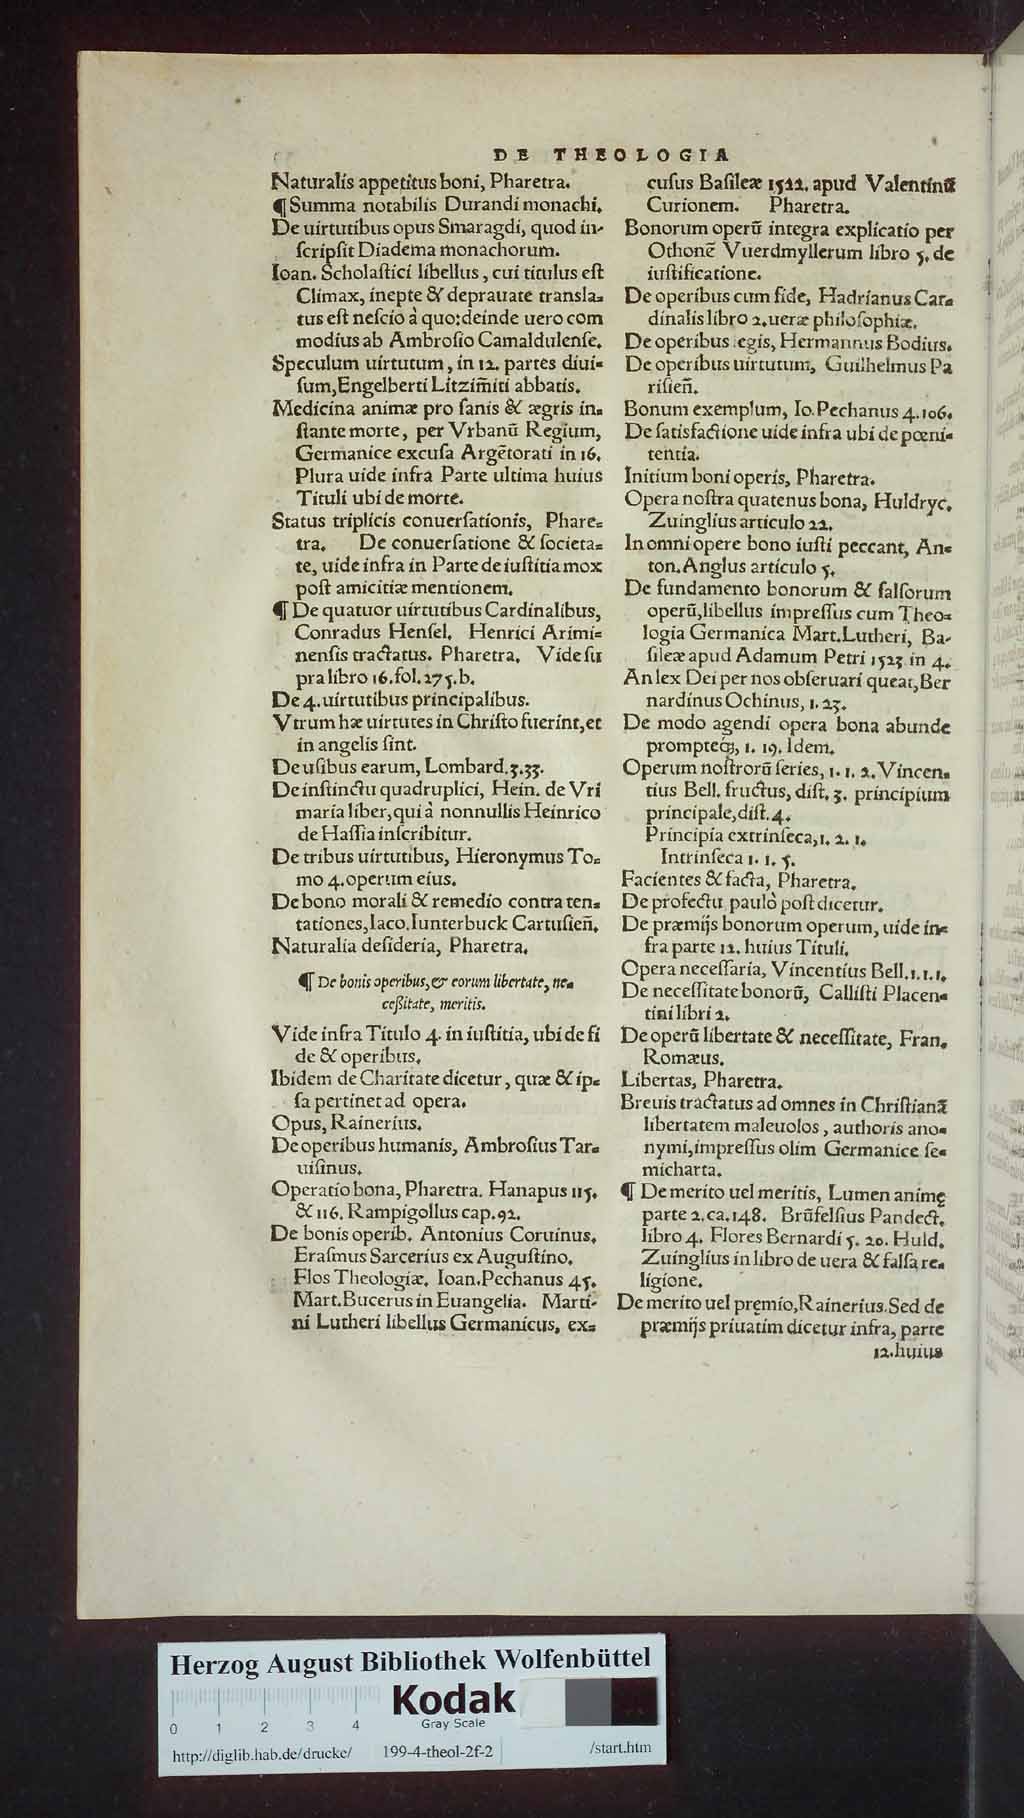 DE THEOLOGIA
Naturalis appetitus boni, Pharetra.
¶ Summa notabilis Durandi monachi.
De uirtutibus opus Smaragdi, quod in-
ſcripſit Diadema monachorum.
Ioan. Scholaſtici libellus, cui titulus eſt
Climax, inepte & deprauate transla-
tus eſt neſcio à quo: deinde uero com
modius ab Ambroſio Camaldulenſe.
Speculum uirtutum, in 12. partes diui-
ſum, Engelberti Litzim̄iti abbatis.
Medicina animæ pro ſanis & ægris in-
ſtante morte, per Vrbanũ Regium,
Germanice excuſa Argẽtorati in 16.
Plura uide infra Parte ultima huius
Tituli ubi de morte.
Status triplicis conuerſationis, Phare-
tra. De conuerſatione & ſocieta-
te, uide infra in Parte de iuſtitia mox
poſt amicitiæ mentionem.
¶ De quatuor uirtutibus Cardinalibus,
Conradus Henſel. Henrici Arimi-
nenſis tractatus. Pharetra. Vide ſu
pra libro 16. fol. 275. b.
De 4. uirtutibus principalibus.
Vtrum hæ uirtutes in Chriſto fuerint, et
in angelis ſint.
De uſibus earum, Lombard. 3. 33.
De inſtinctu quadruplici, Hein. de Vri
maria liber, qui à nonnullis Heinrico
de Haſſia inſcribitur.
De tribus uirtutibus, Hieronymus To-
mo 4. operum eius.
De bono morali & remedio contra ten-
tationes, Iaco. Iunterbuck Cartuſien̄.
Naturalia deſideria, Pharetra.
¶ De bonis operibus, & eorum libertate, ne-
ceßitate, meritis.
Vide infra Titulo 4. in iuſtitia, ubi de fi
de & operibus.
Ibidem de Charitate dicetur, quæ & ip-
ſa pertinet ad opera.
Opus, Rainerius.
De operibus humanis, Ambroſius Tar-
uiſinus.
Operatio bona, Pharetra. Hanapus 115.
& 116. Rampigollus cap. 92.
De bonis operib. Antonius Coruinus.
Eraſmus Sarcerius ex Auguſtino.
Flos Theologiæ. Ioan. Pechanus 45.
Mart. Bucerus in Euangelia. Marti-
ni Lutheri libellus Germanicus, ex-
cuſus Baſileæ 1522. apud Valentinũ
Curionem. Pharetra.
Bonorum operũ integra explicatio per
Othonẽ Vuerdmyllerum libro 5. de
iuſtificatione.
De operibus cum fide, Hadrianus Car-
dinalis libro 2. ueræ philoſophiæ.
De operibus legis, Hermannus Bodius.
De operibus uirtutum, Guilhelmus Pa
riſien̄.
Bonum exemplum, Io. Pechanus 4. 106.
De ſatisfactione uide infra ubi de pœni-
tentia.
Initium boni operis, Pharetra.
Opera noſtra quatenus bona, Huldryc.
Zuinglius articulo 22.
In omni opere bono iuſti peccant, An-
ton. Anglus articulo 5.
De fundamento bonorum & falſorum
operũ, libellus impreſſus cum Theo-
logia Germanica Mart. Lutheri, Ba-
ſileæ apud Adamum Petri 1523 in 4.
An lex Dei per nos obſeruari queat, Ber
nardinus Ochinus, 1. 23.
De modo agendi opera bona abunde
prompteq́;, 1. 19. Idem.
Operum noſtrorũ ſeries, 1. 1. 2. Vincen-
tius Bell. fructus, diſt. 3. principium
principale, diſt. 4.
Principia extrinſeca, 1. 2. 1.
Intrinſeca 1. 1. 5.
Facientes & facta, Pharetra.
De profectu paulò poſt dicetur.
De præmijs bonorum operum, uide in-
fra parte 12. huius Tituli.
Opera neceſſaria, Vincentius Bell. 1. 1. 1.
De neceſſitate bonorũ, Calliſti Placen-
tini libri 2.
De operũ libertate & neceſſitate, Fran.
Romæus.
Libertas, Pharetra.
Breuis tractatus ad omnes in Chriſtianã
libertatem maleuolos, authoris ano-
nymi, impreſſus olim Germanice ſe-
micharta.
¶ De merito uel meritis, Lumen animę
parte 2. ca. 148. Brũfelſius Pandect.
libro 4. Flores Bernardi 5. 20. Huld.
Zuinglius in libro de uera & falſa re-
ligione.
De merito uel pręmio, Rainerius. Sed de
præmijs priuatim dicetur infra, parte
12. huius
Herzog August Bibliothek Wolfenbüttel
Kodak
Gray Scale
0 1 2 3 4
http://diglib.hab.de/drucke/ 199-4-theol-2f-2 /start.htm